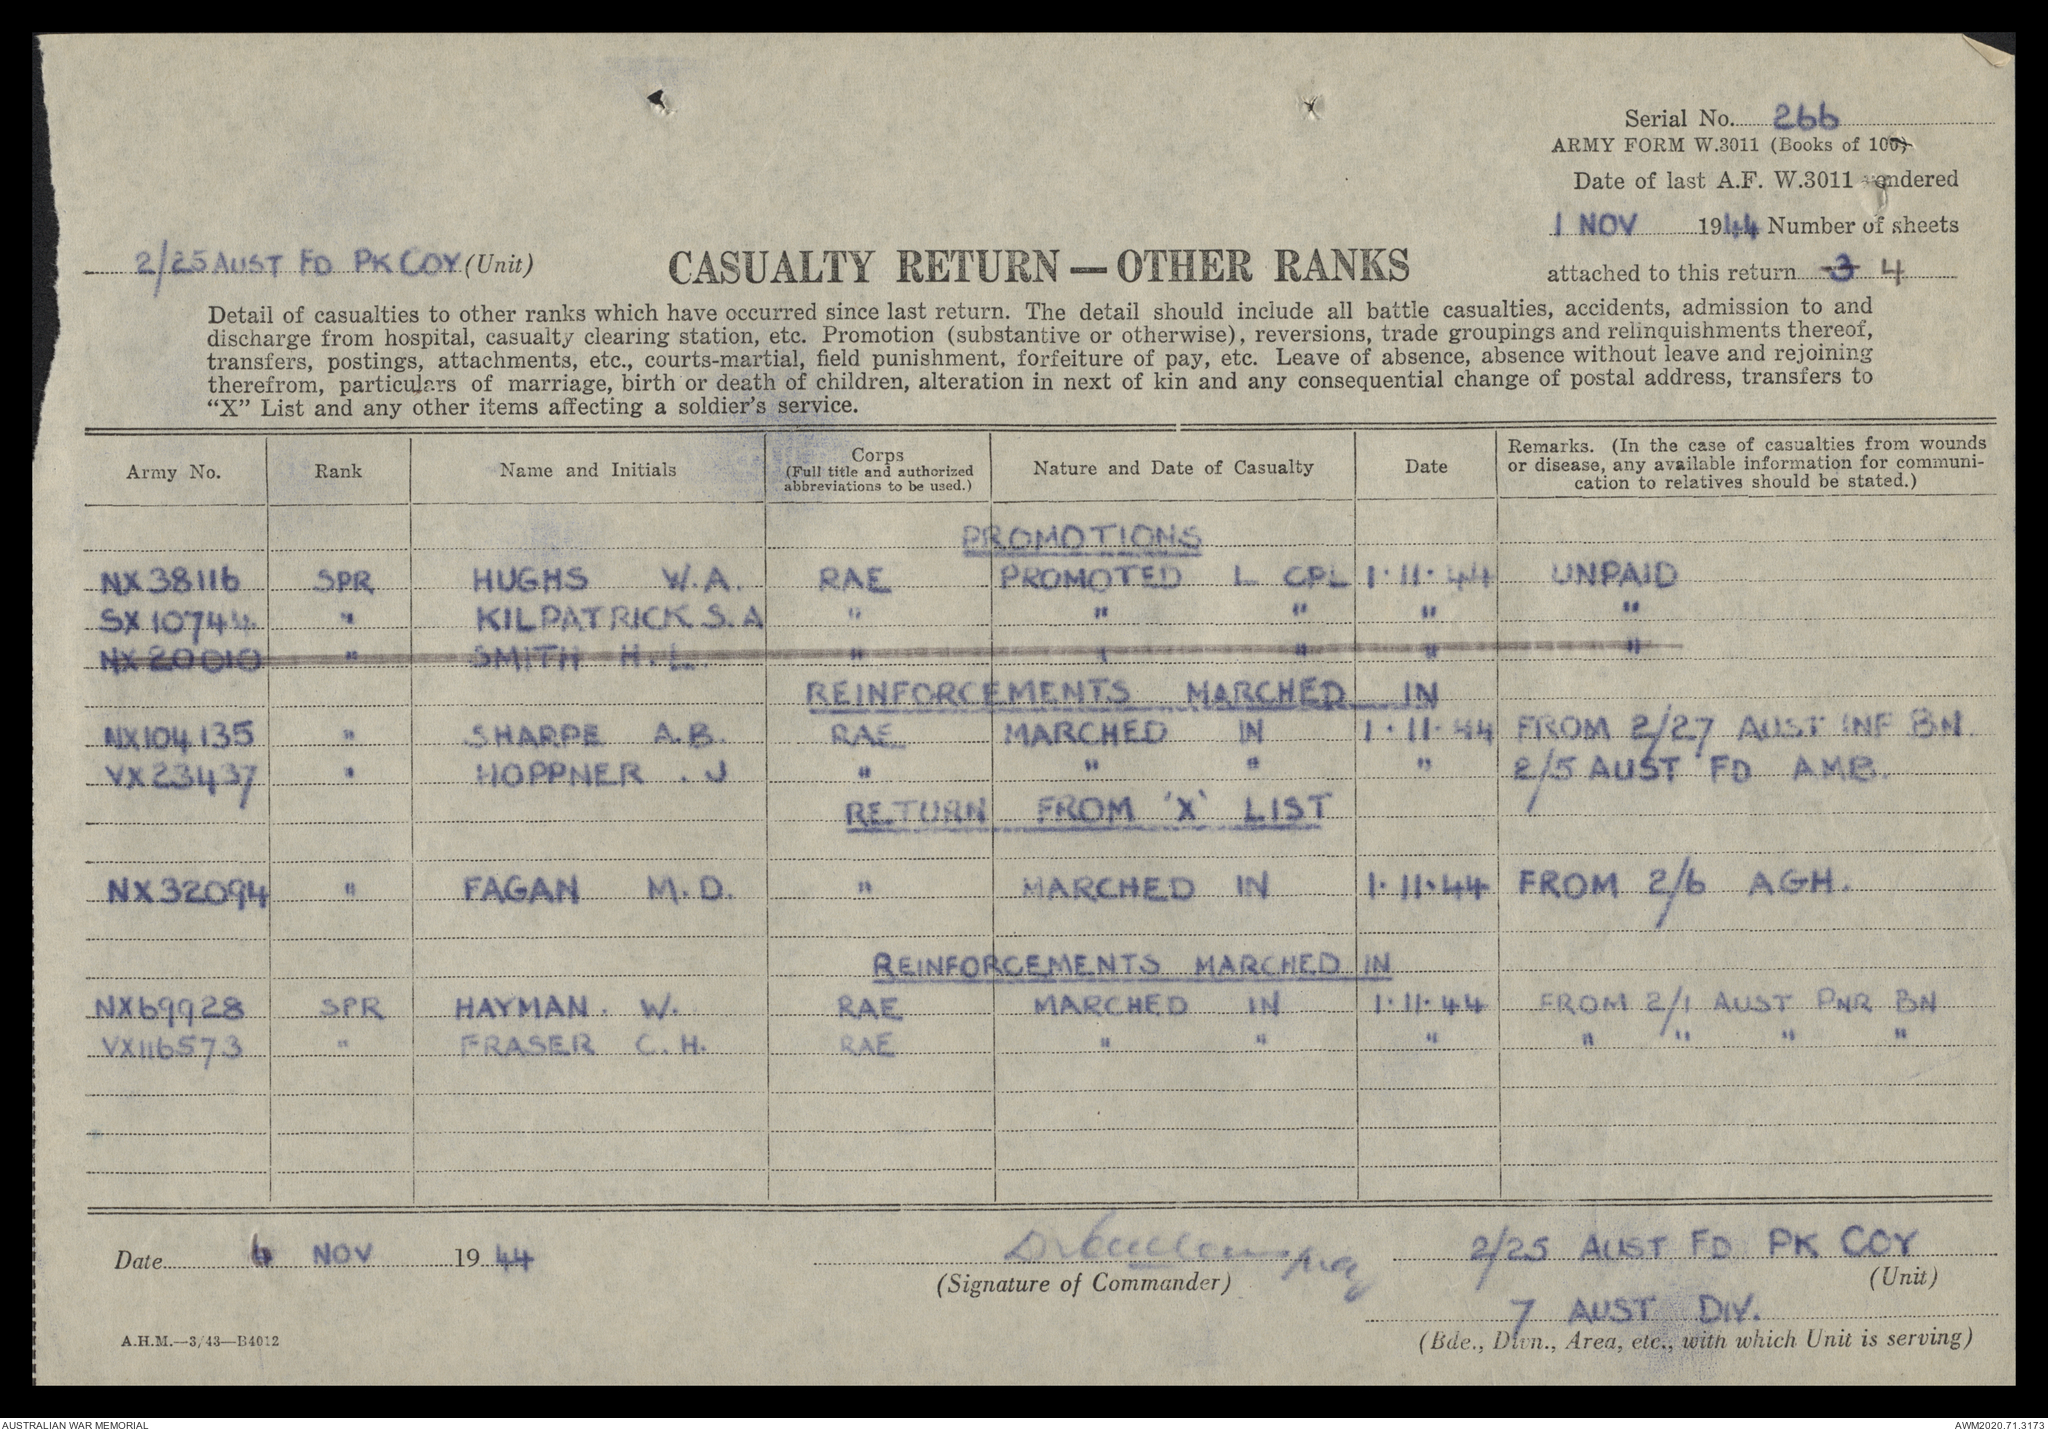 Serial No. 266
ARMY FORM W.3011 (Books of 100)
Date of last A.F. W.3011 rendered
1 NOV 1944 Number of sheets
attached to this return 3 4
2/25 AUST FD PK COY (Unit)
CASUALTY RETURN — OTHER RANKS
Detail of casualties to other ranks which have occurred since last return. The detail should include all battle casualties, accidents, admission to and
discharge from hospital, casualty clearing station, etc. Promotion (substantive or otherwise), reversions, trade groupings and relinquishments thereof,
transfers, postings, attachments, etc., courts-martial, field punishment, forfeiture of pay, etc. Leave of absence, absence without leave and rejoining
therefrom, particulars of marriage, birth or death of children, alteration in next of kin and any consequential change of postal address, transfers to
“X” List and any other items affecting a soldier's service.
Army No. Rank Name and Initials Corps (Full title and authorized abbreviations to be used.) Nature and Date of Casualty Date Remarks. (In the case of casualties from wounds or disease, any available information for communi- cation to relatives should be stated.)
PROMOTIONS
NX38116 SPR HUGHS W.A. RAE PROMOTED L CPL 1.11.44 UNPAID
SX10744 " KILPATRICK S.A " " " " "
NX20010 " SMITH H.L. " " " " "
REINFORCEMENTS MARCHED IN
NX104135 " SHARPE A.B. RAE MARCHED IN 1.11.44 FROM 2/27 AUST INF BN.
VX23437 " HOPPNER . J " " " " 2/5 AUST FD AMB.
RETURN FROM 'X' LIST
NX32094 " FAGAN M.D. " MARCHED IN 1.11.44 FROM 2/6 AGH.
REINFORCEMENTS MARCHED IN
NX69928 SPR HAYMAN. W. RAE MARCHED IN 1.11.44 FROM 2/1 AUST PNR BN
VX116573 " FRASER C.H. RAE " " " " " " "
Date NOV 1944
Maj
(Signature of Commander)
2/25 AUST FD PK COY
(Unit)
7 AUST DIV.
(Bde., Divn., Area, etc., with which Unit is serving)
A.H.M.—3/43—B4012
AUSTRALIAN WAR MEMORIAL
AWM2020.71.3173